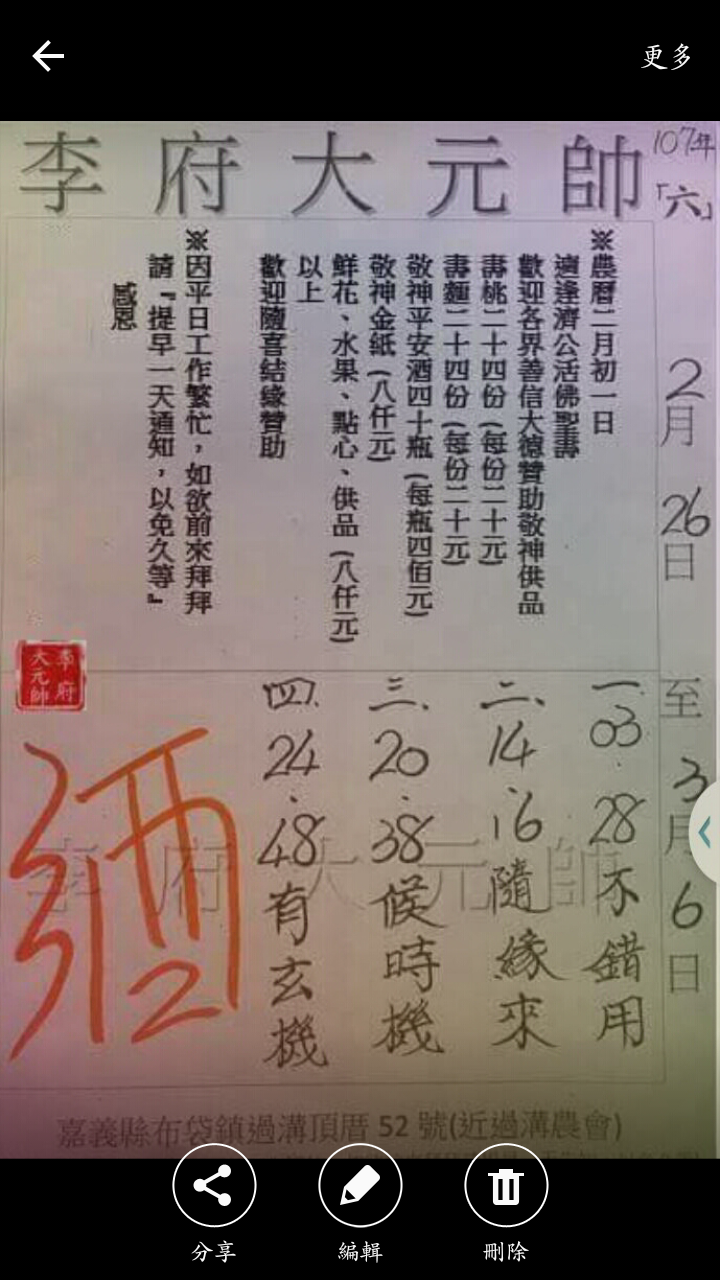 更多
李府大元帥
107年
「六」
2月26日至3月6日
※農曆二月初一日
適逢濟公活佛聖壽
歡迎各界善信大德贊助敬神供品
壽桃二十四份(每份二十元)
壽麵二十四份(每份二十元)
敬神平安酒四十瓶(每瓶四佰元)
敬神金紙(八仟元)
鮮花、水果、點心、供品(八仟元)
以上
歡迎隨喜結緣贊助
※因平日工作繁忙，如欲前來拜拜
請『提早一天通知，以免久等』
感恩
李府
大元帥
一.03.28不錯用
二、14.16隨緣來
三.20.38候時機
四.24.48有玄機
李府大元帥
嘉義縣布袋鎮過溝頂厝52號(近過溝農會)
分享
編輯
刪除